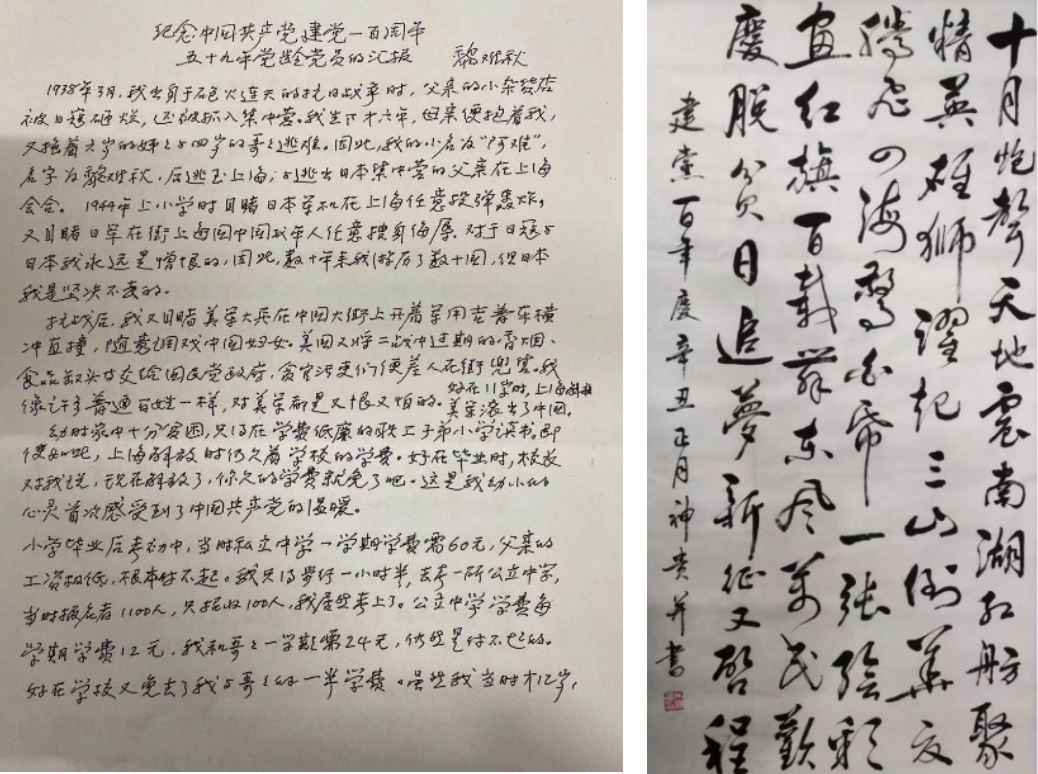 纪念中国共产党建党一百周年
五十九年党龄党员的汇报 黎难秋
1938年3月,我出身于砲火连天的抗日战争时,父亲的小杂货店
被日寇砸烂,还被抓入集中营。我生下才六年,母亲便抱着我,
又拖着六岁的姐々与四岁的哥々逃难。因此,我的小名为“阿难”,
名字为黎难秋,后逃至上海,与逃出日本集中营的父亲在上海
会合。1944年上小学时目睹日本军机在上海任意投弹轰炸。
又目睹日军在街上海国中国成年人任意搜身侮辱.对于日寇与
日本我永远是憎恨的,因此,数十年来我游历了数十国,但日本
我是坚决不去的。
抗战后,我又目睹美军大兵在中国大街上开着军用吉普车横
冲直撞,随意调戏中国妇女。美国又将二战中过期的香烟、
食品罐头等交给国民党政府,贪官污吏们便差人在街兜售。我
像许多普通百姓一样,对美军都是又恨又怕的。好在11岁时,上海解放
美军滚出了中国。
幼时家中十分贫困,只得在学费低廉的职工子弟小学读书。即
使如此,上海解放时仍欠着学校的学费。好在毕业时,校长
对我说,现在解放了,你欠的学费就免了吧。这是我幼小的
心灵首次感受到了中国共产党的温暖。
小学毕业后考初中,当时私立中学一学期学费需60元,父亲的
工资极低,根本付不起。我只得步行一小时半,去考一所公立中学,
当时报名者1100人,只招收100人,我居然考上了。公立中学学费每
学期学费12元,我和哥々一学期需24元,仍然是付不起的。
好在学校又免去了我与哥々的一半学费。虽然我当时才12岁,
十月炮声天地震南湖红舫聚
精英雄狮跃起三山倒华夏
腾飞四海惊画帛一张绘彩
画红旗百载舞东风万民欢
庆脱贫日追梦新征又启程
建党百年庆辛丑正月神贵并书